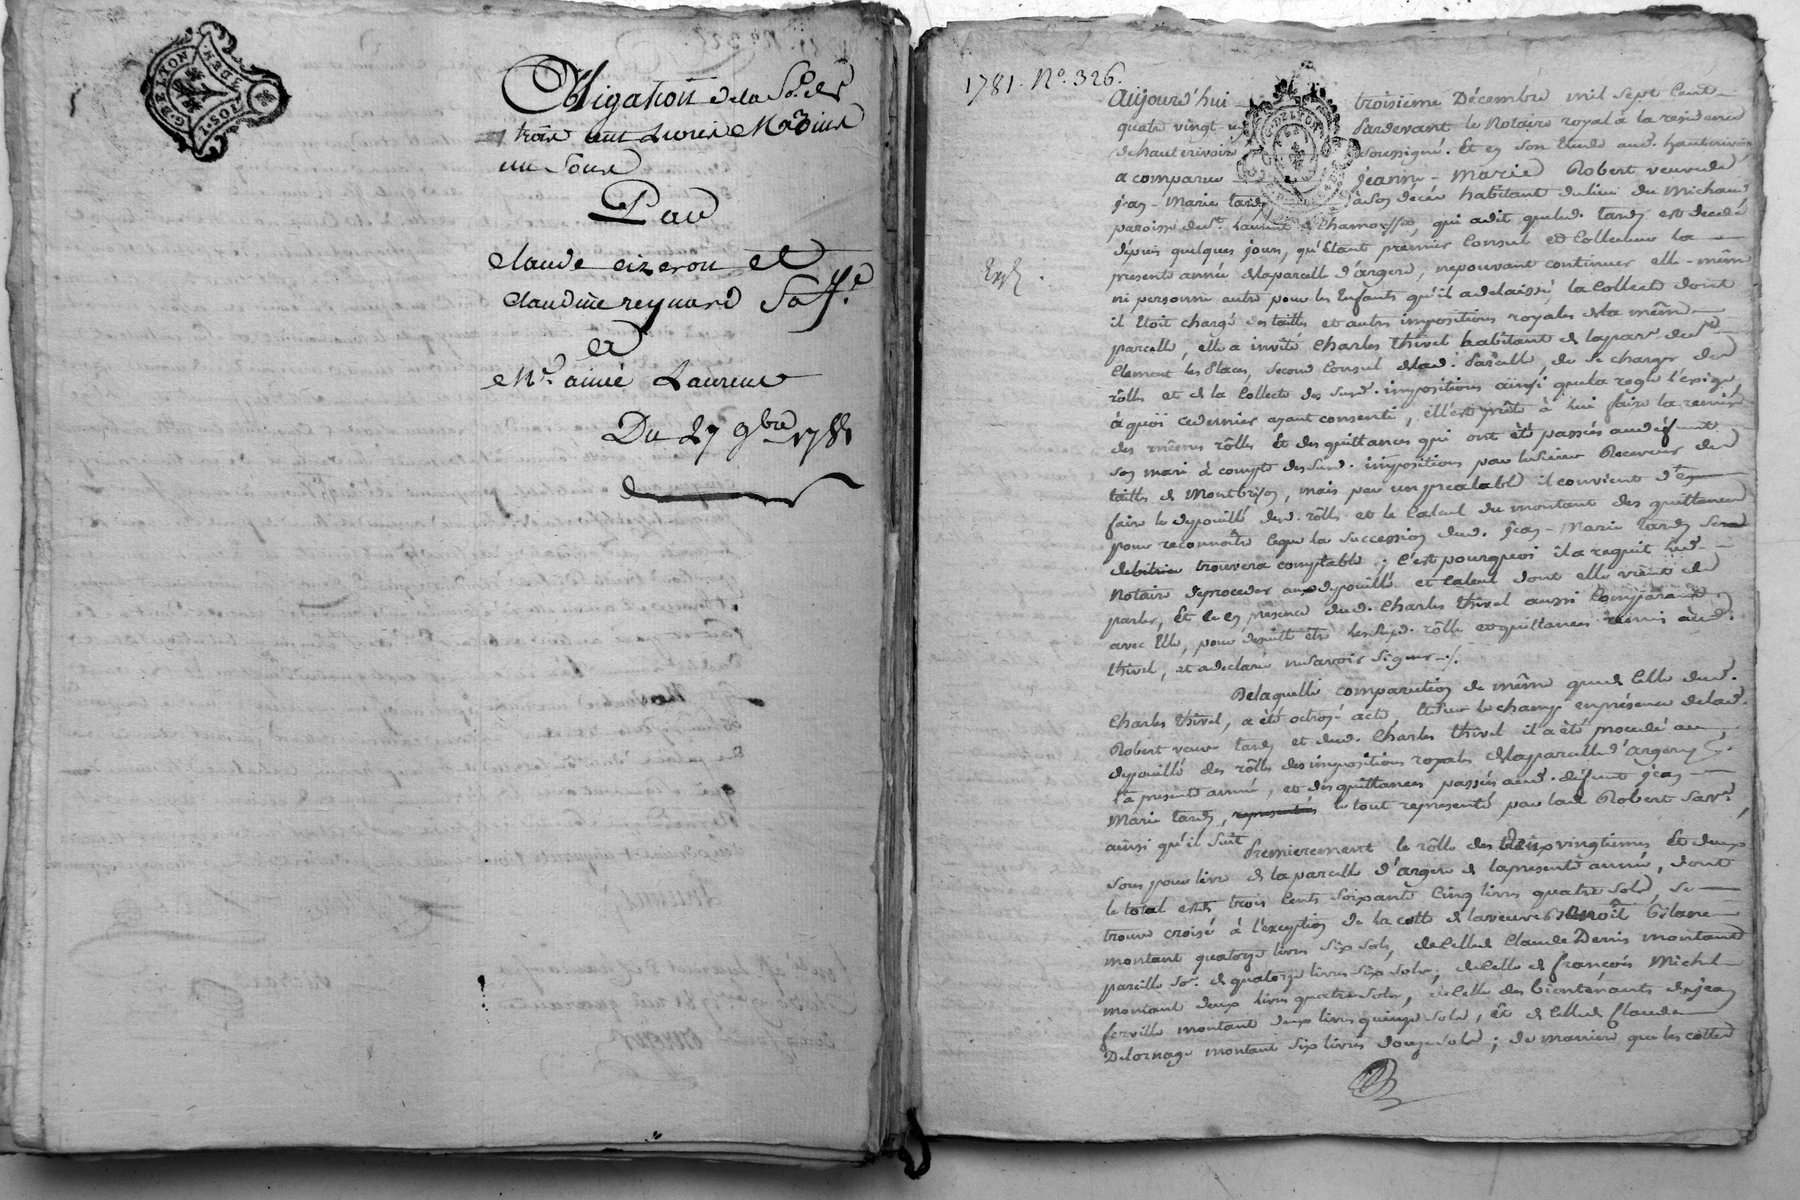 G. DE LYON
2 SOLS
Obligation de la Se. de
trois cent Livres
un Sous
Par
claude cizeron et
claudine reymard Sa ffe.
et
Me. aimé Laurent
Du 27 9bre 1781
1781. No. 326.
G. DE LYON
Aujourd'hui troisieme Décembre mil sept Cent
quatre vingt un Pardevant le Notaire royal à la residence
de hauterivoire soussigné. Et en son Etude aud. hauterivoire
a comparu jeanne-Marie Robert veuve de
jean-Marie tardy à son décés habitant du lieu du Michaud
paroisse de St. Laurent de Chamousset, qui a dit que led. tardy est decedé
depuis quelques jours, qu'Etant premier Consul et Collecteur la
presente année de la parcelle d'argere, ne pouvant continuer elle-même
ni personne autre pour les Enfants qu'il a delaissé, la Collecte dont
il Etoit chargé des tailles et autres impositions royales de la même
parcelle, elle a invité Charles thivel habitant de la parr. de St.
Clement les Places, second Consul de lad. Parcelle, de se charger des
rôlles et de la Collecte des susd. impositions ainsi que la regle l'exige,
à quoi ce dernier ayant consenti, Elle est prête à lui faire la remise
des mêmes rôlles Et des quittances qui ont été passées aud. defunt
son mari à compte des susd. impositions par le sieur Receveur des
tailles de Montbrison, mais par un prealable il convient d'en
faire le depouillé desd. rôlles et le Calcul du montant des quittances
pour reconnoître ce que la succession dud. jean-Marie tardy sera
debitrice trouvera comptable; C'est pourquoi il a requit led.
Notaire de proceder aux depouillé et Calcul dont elle vient de
parler, Et ce en presence dud. Charles thivel aussi Comparant
avec Elle, pour ensuite être lesd. rôlles et quittances remis aud.
thivel, et a declaré ne savoir signer ./.
De laquelle comparution de même que de celle dud.
Charles thivel, a été octroyé acte, Et sur le champ en présence de lad.
Robert veuve tardy et dud. Charles thivel il a été procedé au
depouillé des rôlles des impositions royales de la parcelle d'argere
la presente année, et des quittances passées aud. défunt jean
Marie tardy, representés le tout representé par lad. Robert sa ve.
ainsi qu'il suit
Premierement le rôlle des deux vingtiemes Et deux
sous pour livre de la parcelle d'argere de la presente année, dont
le total est de trois Cents soixante Cinq livres quatre sols, se
trouve croisé à l'exception de la cotte de la veuve Benoît
montant quatorze livres six sols, de celle de Claude Denis montant
pareille se. de quatorze livres six sols, de celle de françois Michel
montant deux livres quatre sols, de celle des bientenants de jean
ferville montant deux livres quinze sols, Et de celle de Claude
Delornage montant six livres douze sols; de maniere que les cottes